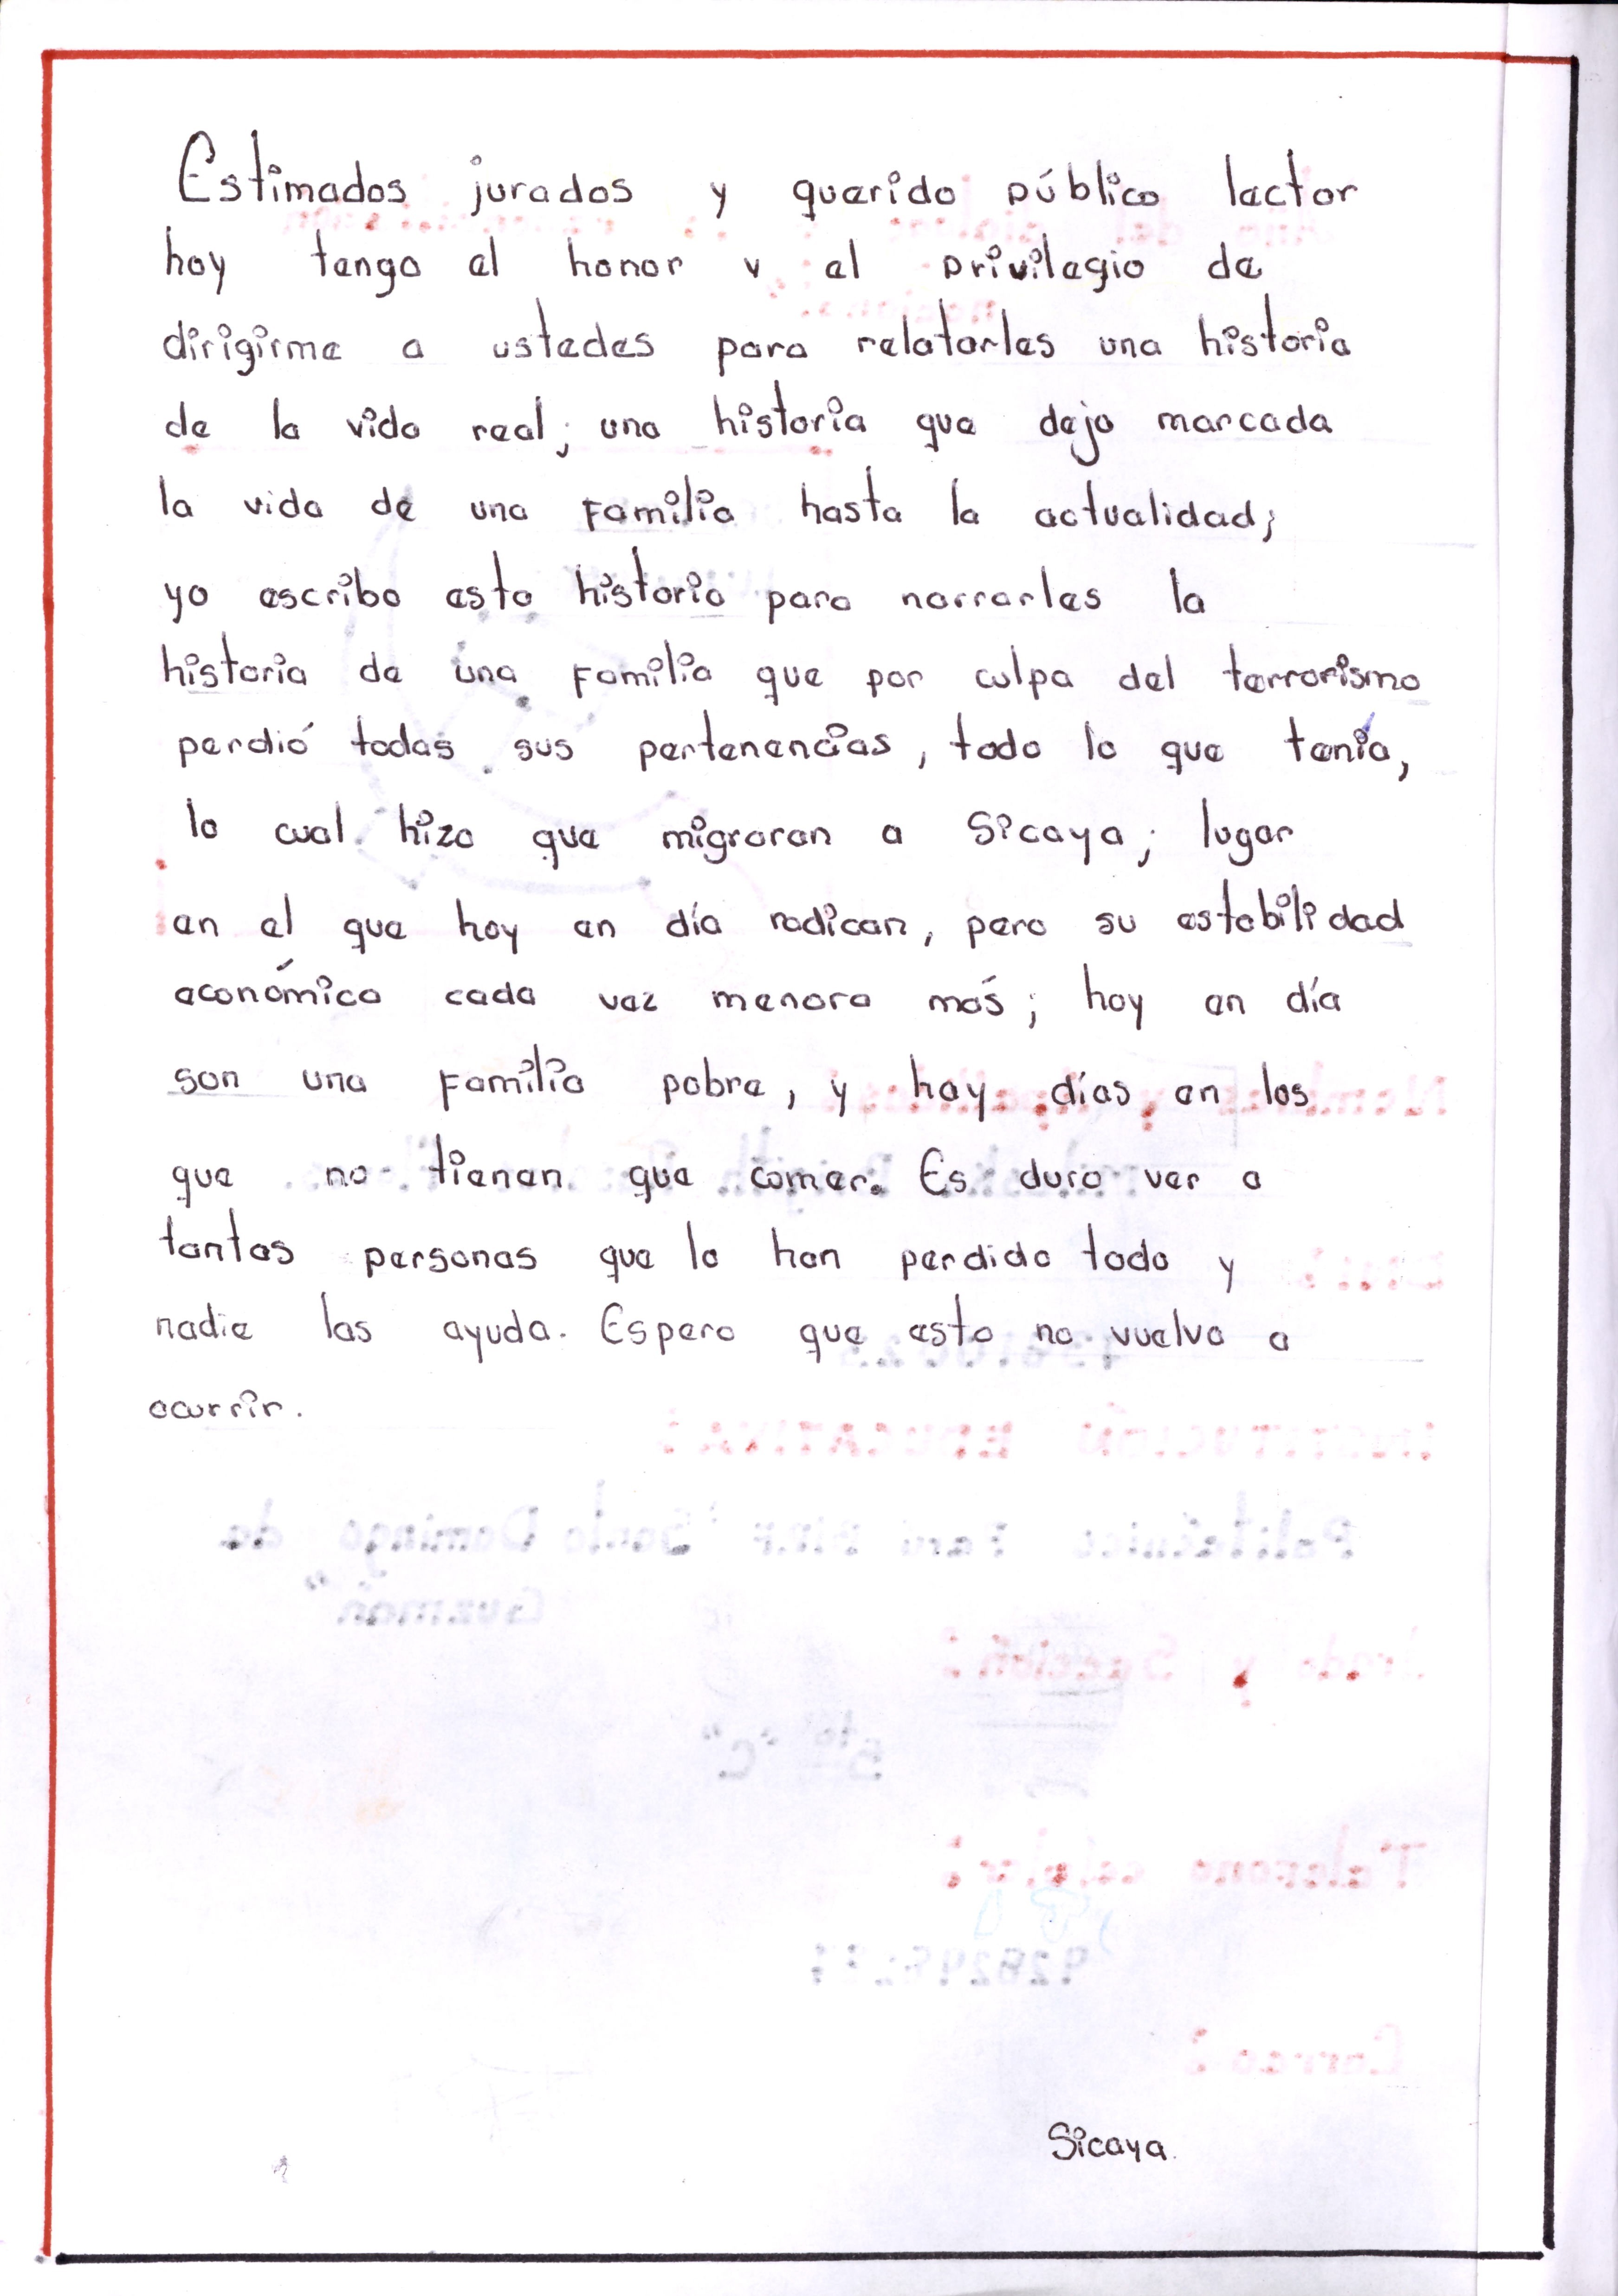 Estimados jurados y querido público lector
hoy tengo el honor y el privilegio de
dirigirme a ustedes para relatarles una historia
de la vida real; una historia que dejo marcada
la vida de una familia hasta la actualidad;
yo escribo esta historia para narrarles la
historia de una familia que por culpa del terrorismo
perdió todas sus pertenencias, todo lo que tenía,
lo cual hizo que migraran a Sicaya; lugar
en el que hoy en día radican, pero su estabilidad
económica cada vez menora más; hoy en día
son una familia pobre, y hay días en los
que no tienen que comer. Es duro ver a
tantas personas que lo han perdido todo y
nadie las ayuda. Espero que esto no vuelva a
ocurrir.
Sicaya.